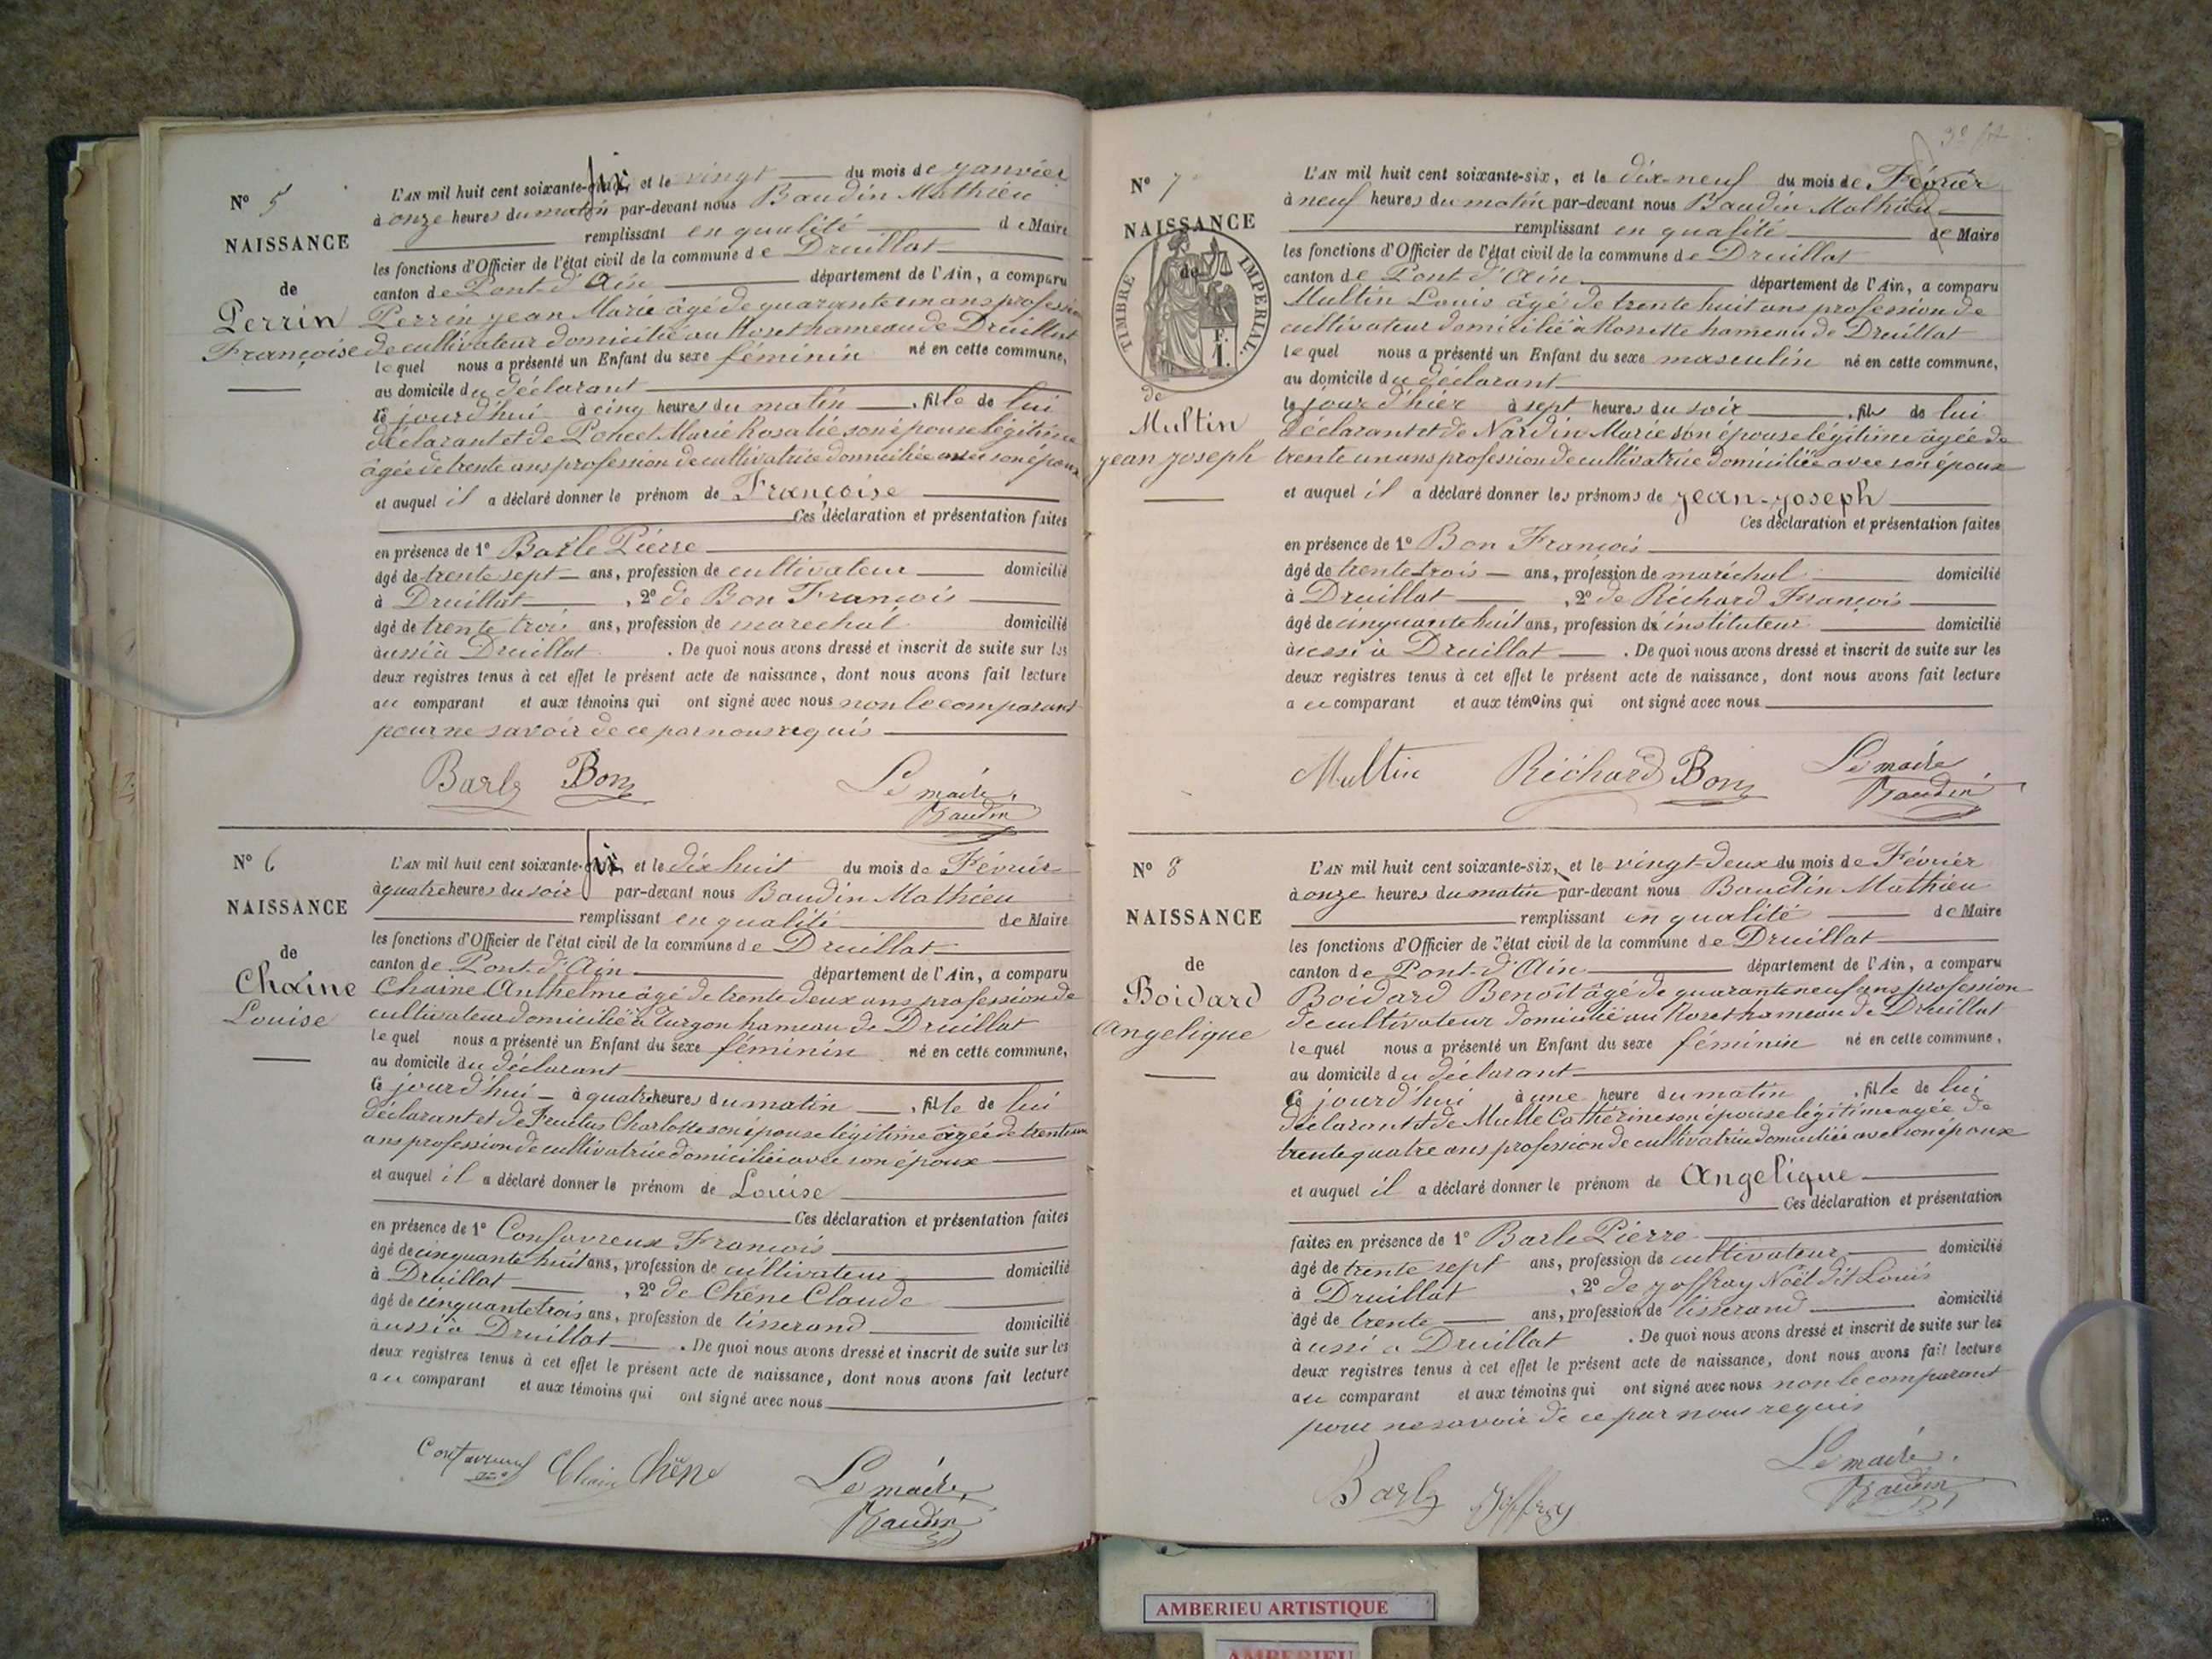 N° 5
NAISSANCE
de
Perrin
Françoise
L'AN mil huit cent soixante-six, et le vingt du mois de janvier
à onze heures du matin par-devant nous Baudin Mathieu
remplissant en qualité de Maire
les fonctions d'Officier de l'état civil de la commune de Druillat
canton de Pont-d'Ain département de l'Ain, a comparu
Perrin jean Marie âgé de quarante un ans profession
de cultivateur domicilié au Roset hameau de Druillat
lequel nous a présenté un Enfant du sexe féminin né en cette commune,
au domicile du déclarant
ce jourd'hui à cinq heures du matin, fille de lui
déclarant et de Poncet Marie Rosalie son épouse légitime
âgée de trente ans profession de cultivatrice domiciliée avec son époux
et auquel il a déclaré donner le prénom de Françoise
Ces déclaration et présentation faites
en présence de 1° Barle Pierre
âgé de trente sept ans, profession de cultivateur domicilié
à Druillat, 2° de Bon François
âgé de trente trois ans, profession de marechal domicilié
aussi à Druillat. De quoi nous avons dressé et inscrit de suite sur les
deux registres tenus à cet effet le présent acte de naissance, dont nous avons fait lecture
au comparant et aux témoins qui ont signé avec nous non le comparant
pour ne savoir de ce par nous requis
Barle Bon Le maire
Baudin
N° 6
NAISSANCE
de
Chaine
Louise
L'AN mil huit cent soixante-six, et le dix huit du mois de Février
à quatre heures du soir par-devant nous Baudin Mathieu
remplissant en qualité de Maire
les fonctions d'Officier de l'état civil de la commune de Druillat
canton de Pont-d'Ain département de l'Ain, a comparu
Chaine Anthelme âgé de trente deux ans profession de
cultivateur domicilié à Turgon hameau de Druillat
lequel nous a présenté un Enfant du sexe féminin né en cette commune,
au domicile du déclarant
ce jourd'hui à quatre heures du matin, fille de lui
déclarant et de Fructus Charlotte son épouse légitime âgée de trente un
ans profession de cultivatrice domiciliée avec son époux
et auquel il a déclaré donner le prénom de Louise
Ces déclaration et présentation faites
en présence de 1° Confavreux François
âgé de cinquante huit ans, profession de cultivateur domicilié
à Druillat, 2° de Chêne Claude
âgé de cinquante trois ans, profession de tisserand domicilié
aussi à Druillat. De quoi nous avons dressé et inscrit de suite sur les
deux registres tenus à cet effet le présent acte de naissance, dont nous avons fait lecture
au comparant et aux témoins qui ont signé avec nous
Confavreux Chaine Chêne Le maire
Baudin
3e
N° 7
NAISSANCE
TIMBRE IMPERIAL.
F. 1.
de
de
Multin
jean joseph
L'AN mil huit cent soixante-six, et le dix-neuf du mois de Février
à neuf heures du matin par-devant nous Baudin Mathieu
remplissant en qualité de Maire
les fonctions d'Officier de l'état civil de la commune de Druillat
canton de Pont-d'Ain département de l'Ain, a comparu
Multin Louis âgé de trente huit ans profession de
cultivateur domicilié à Rossette hameau de Druillat
lequel nous a présenté un Enfant du sexe masculin né en cette commune,
au domicile du déclarant
le jour d'hier à sept heures du soir, fils de lui
déclarant et de Nardin Marie son épouse légitime âgée de
trente un ans profession de cultivatrice domiciliée avec son époux
et auquel il a déclaré donner les prénoms de jean-joseph
Ces déclaration et présentation faites
en présence de 1° Bon François
âgé de trente trois ans, profession de maréchal domicilié
à Druillat, 2° de Richard François
âgé de cinquante huit ans, profession de instituteur domicilié
aussi à Druillat. De quoi nous avons dressé et inscrit de suite sur les
deux registres tenus à cet effet le présent acte de naissance, dont nous avons fait lecture
au comparant et aux témoins qui ont signé avec nous
Multin Richard Bon Le maire
Baudin
N° 8
NAISSANCE
de
Boidard
Angelique
L'AN mil huit cent soixante-six, et le vingt-deux du mois de Février
à onze heures du matin par-devant nous Baudin Mathieu
remplissant en qualité de Maire
les fonctions d'Officier de l'état civil de la commune de Druillat
canton de Pont-d'Ain département de l'Ain, a comparu
Boidard Benoît âgé de quarante neuf ans profession
de cultivateur domicilié au Roset hameau de Druillat
lequel nous a présenté un Enfant du sexe féminin né en cette commune,
au domicile du déclarant
ce jourd'hui à une heure du matin, fille de lui
déclarant et de Mulle Cathérine son épouse légitime agée de
trente quatre ans profession de cultivatrice domiciliée avec son époux
et auquel il a déclaré donner le prénom de Angelique
Ces déclaration et présentation
faites en présence de 1° Barle Pierre
âgé de trente sept ans, profession de cultivateur domicilié
à Druillat, 2° de joffray Noël dit Louis
âgé de trente ans, profession de tisserand domicilié
aussi a Druillat. De quoi nous avons dressé et inscrit de suite sur les
deux registres tenus à cet effet le présent acte de naissance, dont nous avons fait lecture
au comparant et aux témoins qui ont signé avec nous non le comparant
pour ne savoir de ce par nous requis
Barle Joffray Le maire
Baudin
AMBERIEU ARTISTIQUE
AMBERIEU